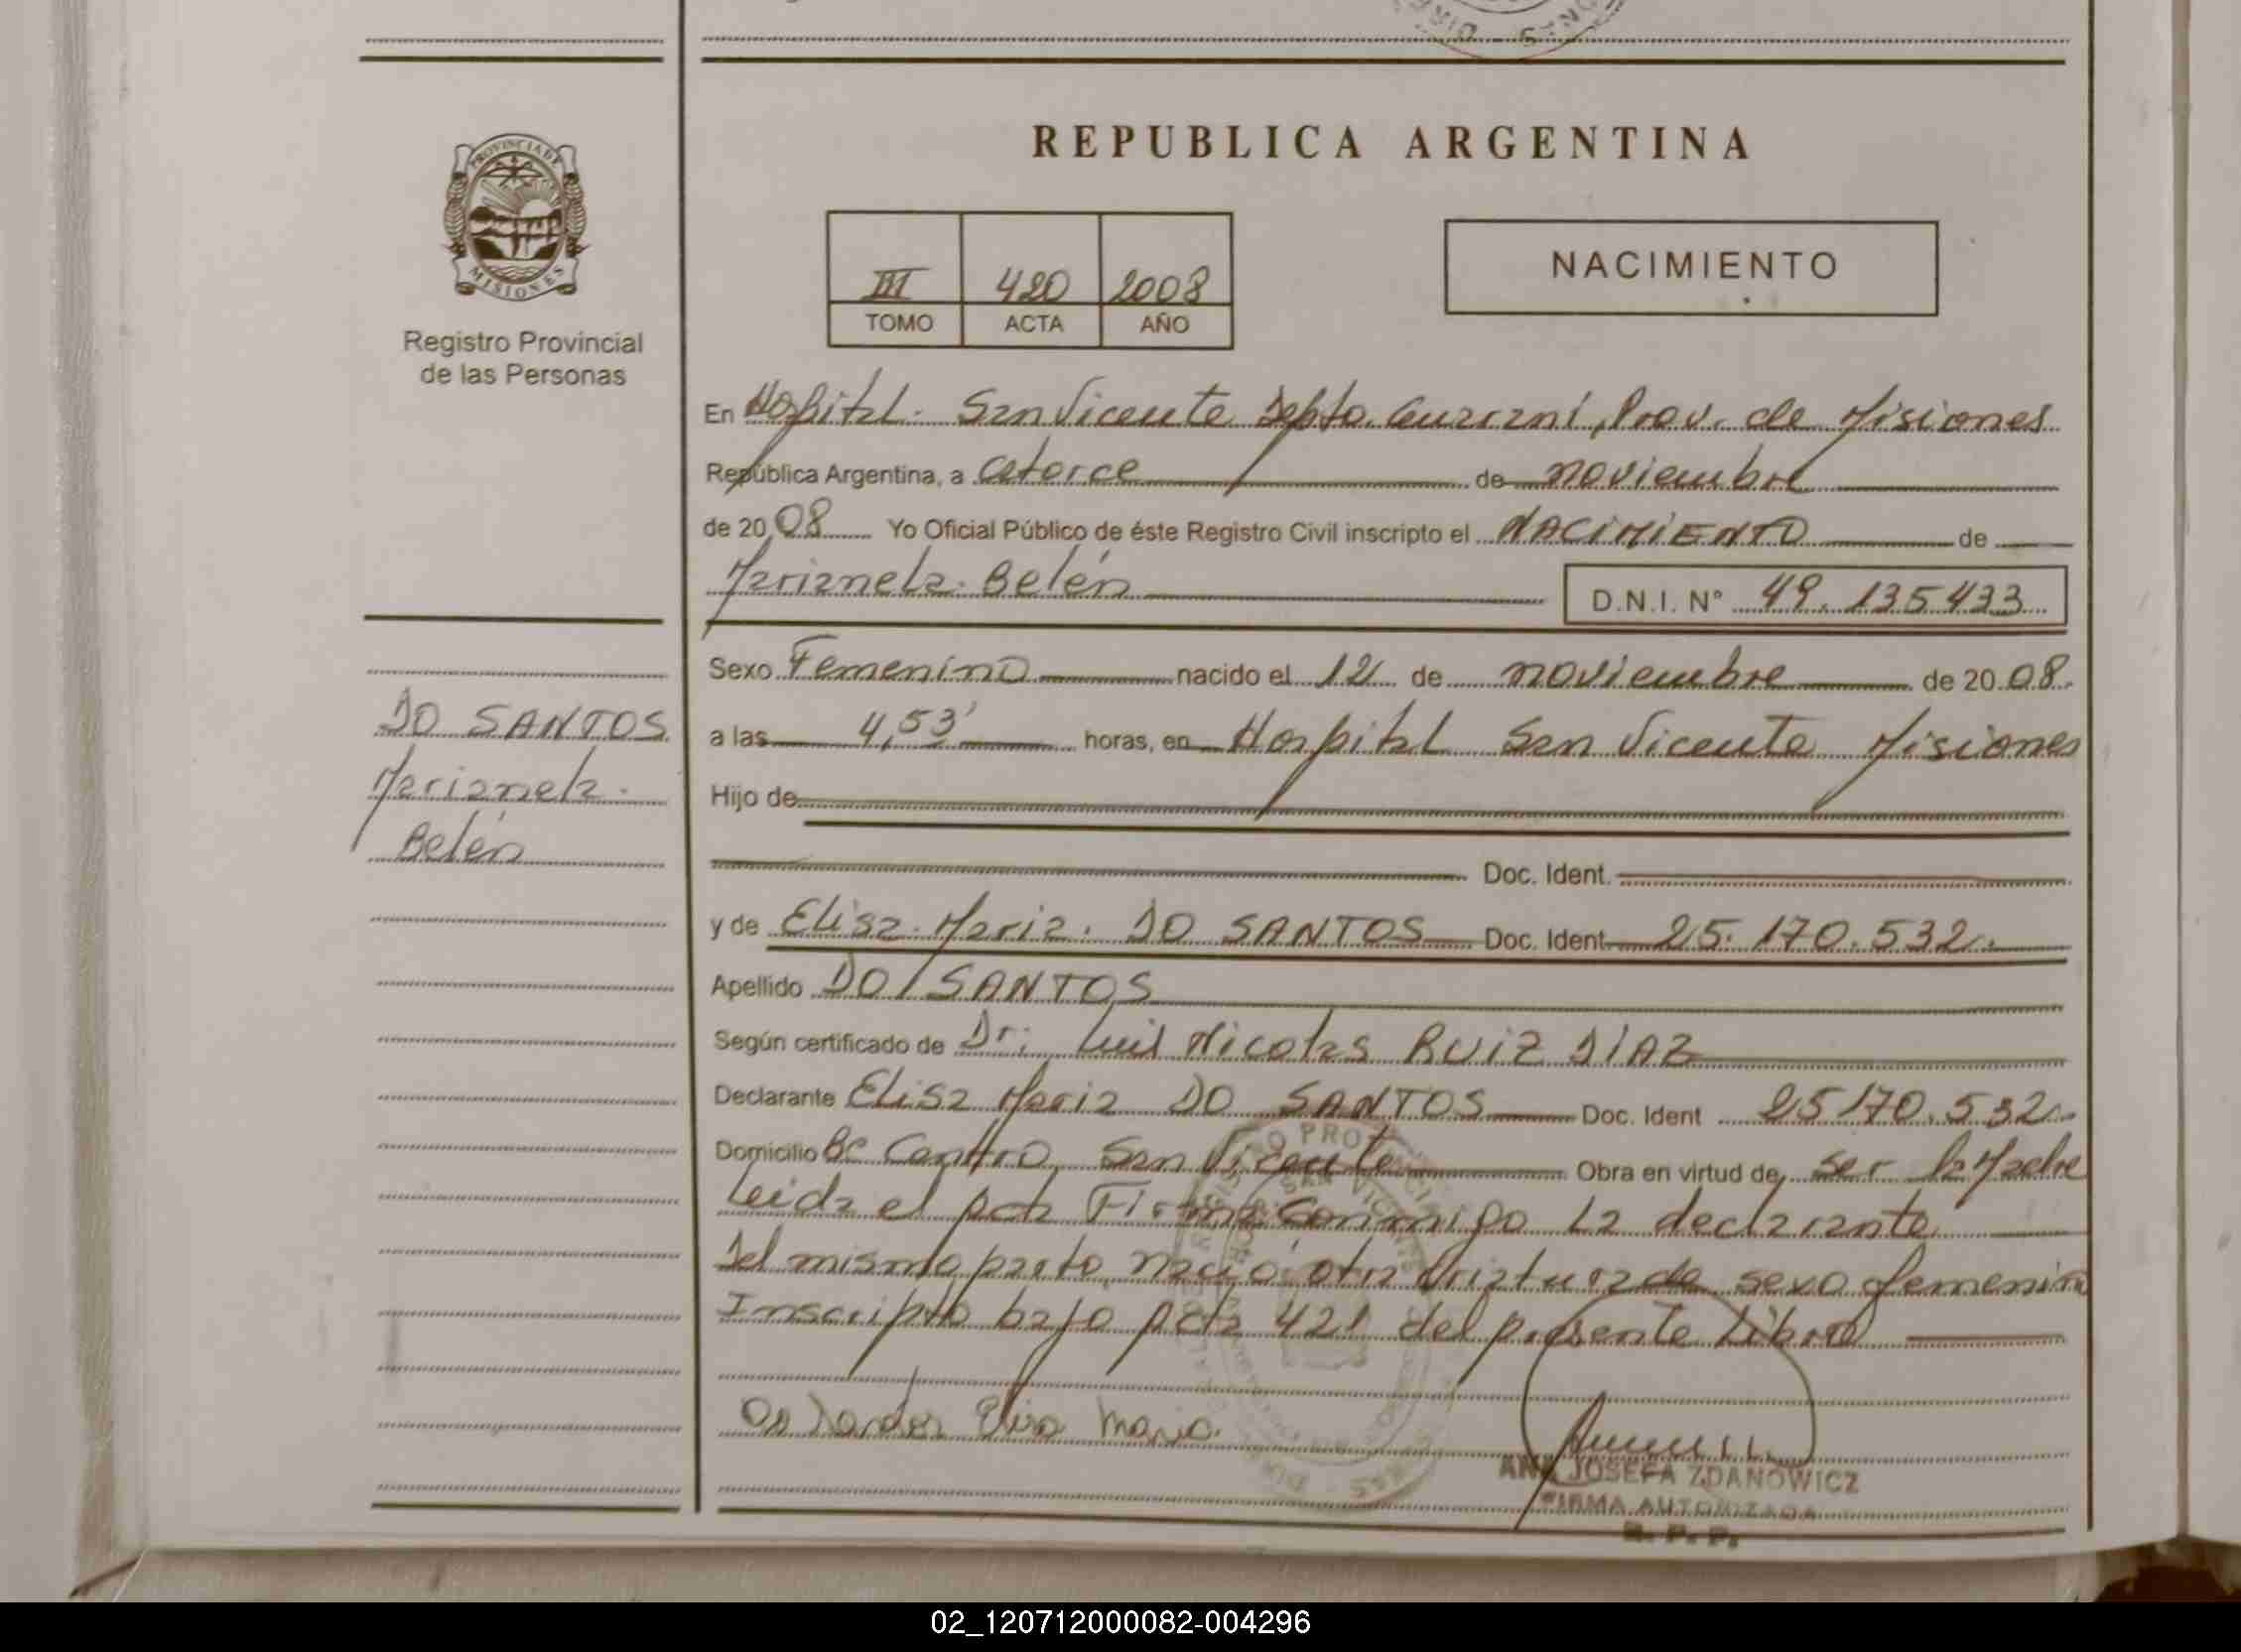 REPUBLICA ARGENTINA
PROVINCIA DE
MISIONES
Registro Provincial
de las Personas
III 420 2008
TOMO ACTA AÑO
NACIMIENTO
En Hospital. San Vicente Depto. Guaraní, Prov. de Misiones
República Argentina, a catorce de noviembre
de 2008 Yo Oficial Público de éste Registro Civil inscripto el NACIMIENTO de
Marianela Belén D.N.I. Nº 49.135433
Sexo Femenino nacido el 12 de noviembre de 2008.
a las 4,53' horas, en Hospital San Vicente Misiones
Hijo de
Doc. Ident.
y de Elisa Maria. DO SANTOS Doc. Ident 25.170.532.
Apellido DO SANTOS
Según certificado de Dr. Luis Nicolas RUIZ DIAZ
Declarante Elisa Maria DO SANTOS Doc. Ident 25170.532.
Domicilio Bº Centro San Vicente Obra en virtud de ser la Madre
Leida el acta Firma conmigo la declarante
Del mismo parto, nació otra criatura de sexo femenino
Inscripto bajo Acta 421 del presente Libro
Do Santos Elisa Maria.
ANA JOSEFA ZDANOWICZ
FIRMA AUTORIZADA
R. P. P.
DO SANTOS
Marianela.
Belén
02_120712000082-004296